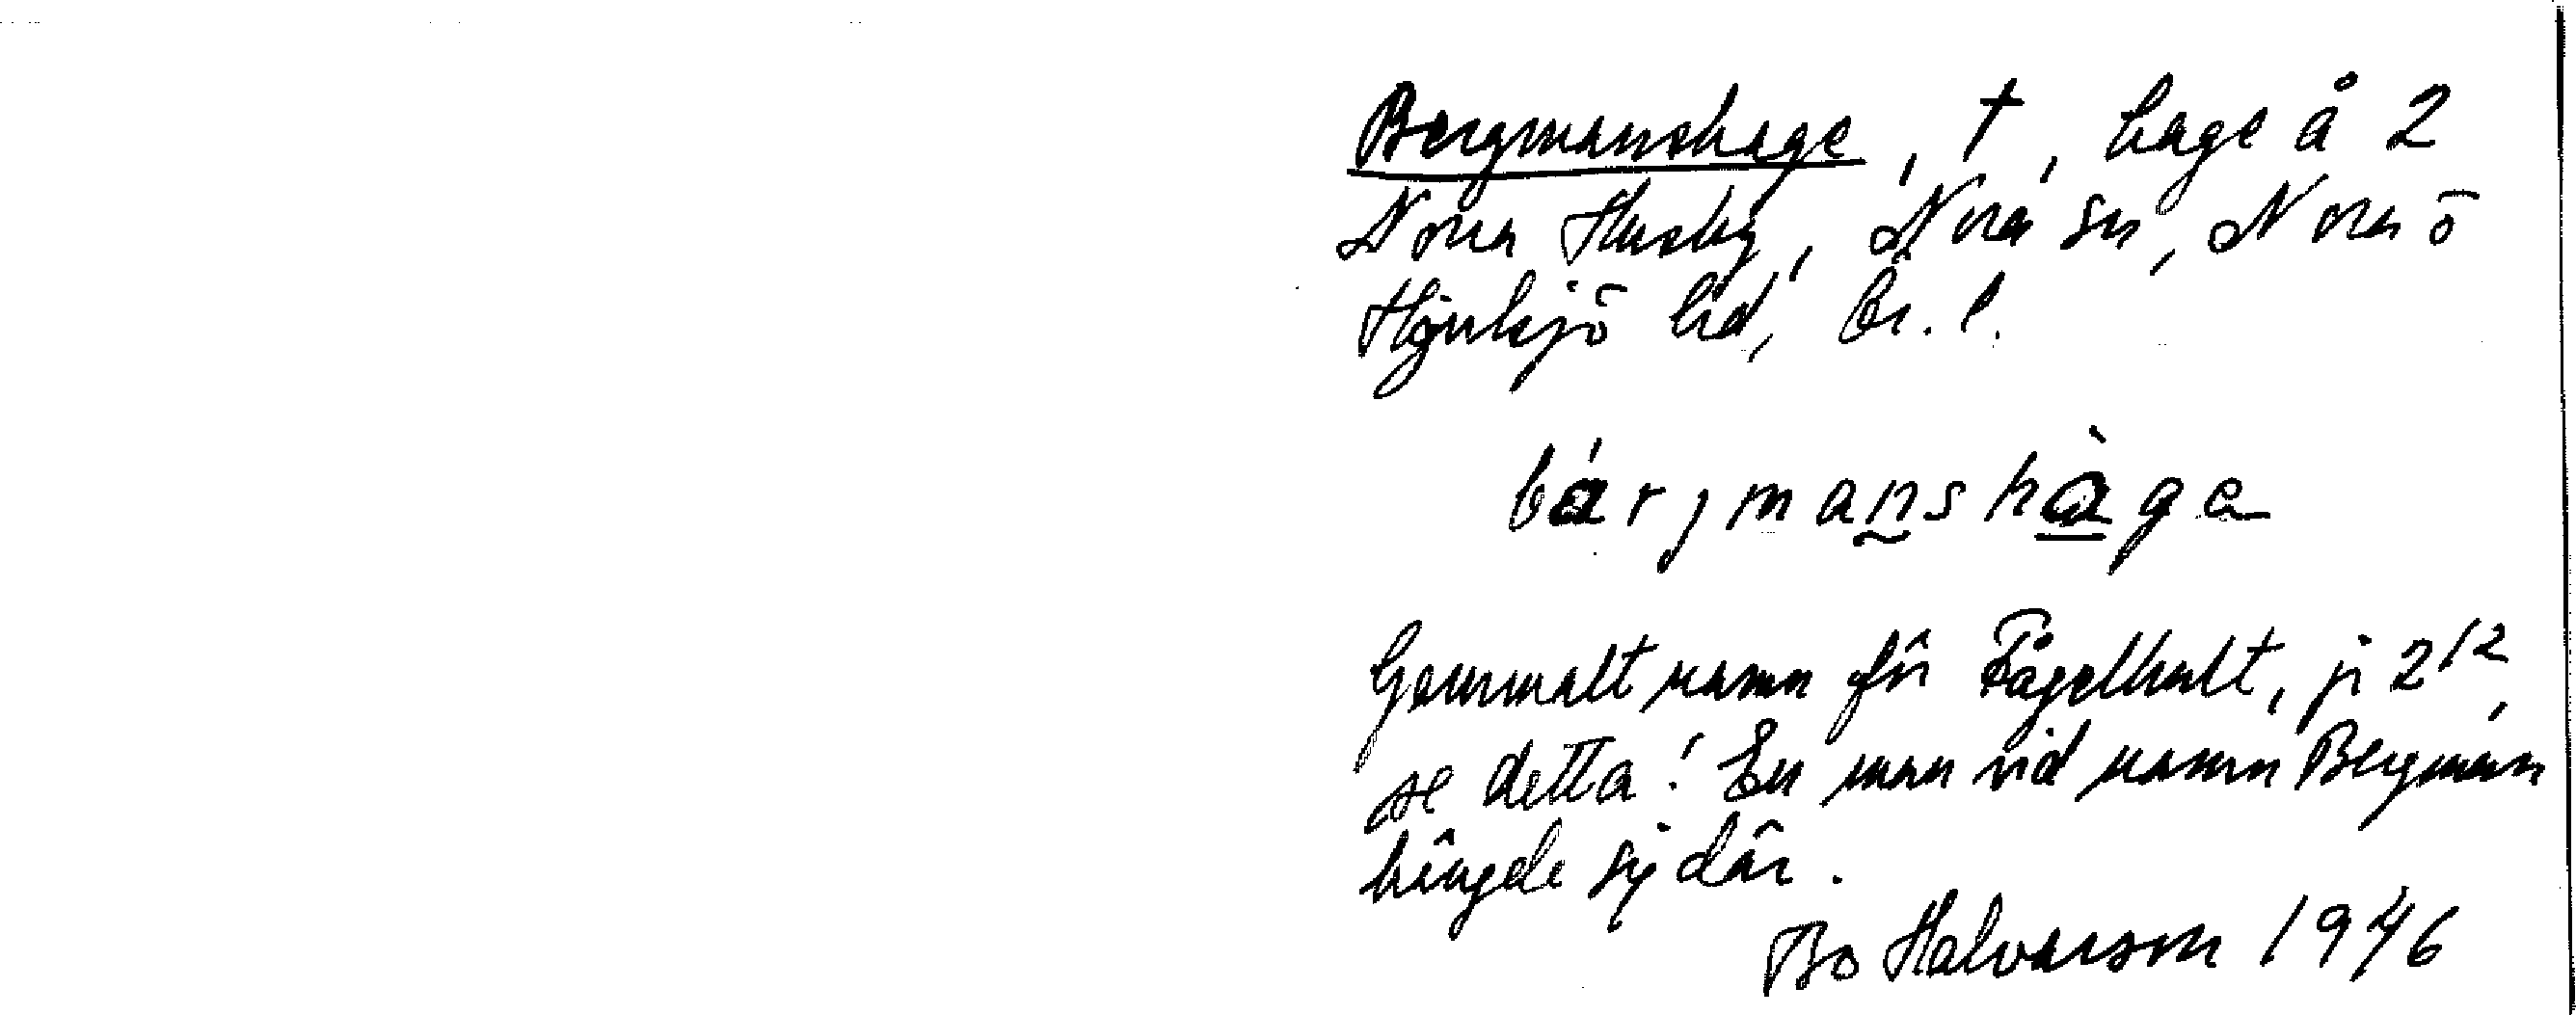 Bergmanshage, †, hage å 2
Nora Husby, Nora sn, Nora ō
Hjulsjö hd, Ör. l.
bárjmanshàga
Gammalt namn för Fågelhult, ji 2¹²,
se detta! En man vid namn Bergman
hängde sig där.
Bo Halvarson 1946